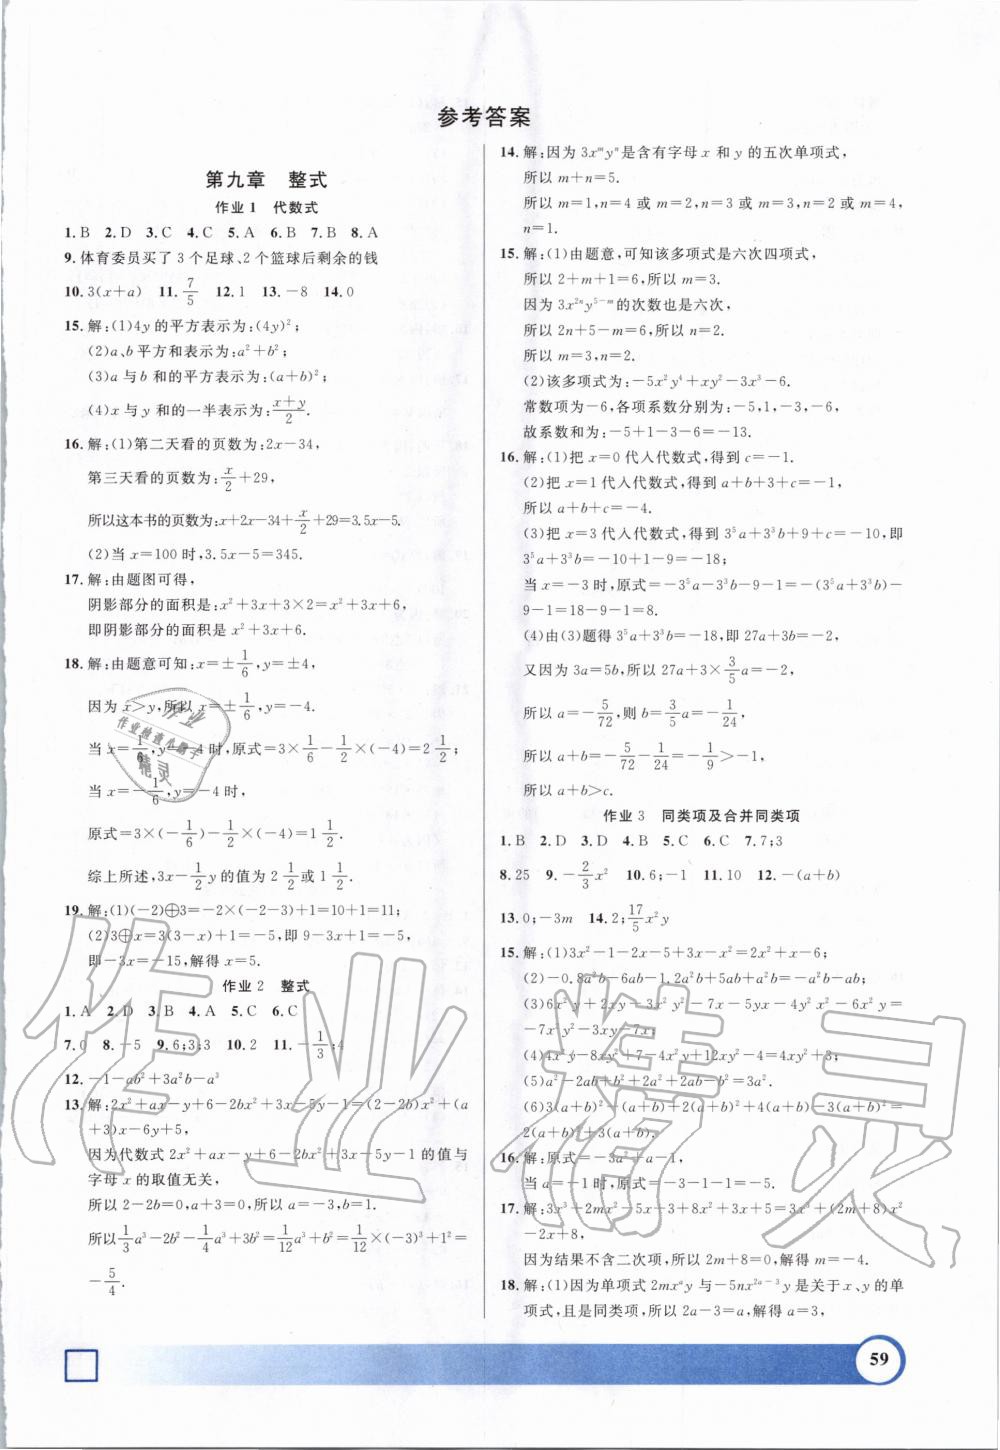 参考答案
第九章　整式
作业1　代数式
1. B　2. D　3. C　4. C　5. A　6. B　7. B　8. A
9. 体育委员买了3个足球、2个篮球后剩余的钱
10. 3(x+a)　11. 7/5　12. 1　13. -8　14. 0
15. 解:(1)4y的平方表示为:(4y)²;
(2)a、b平方和表示为:a²+b²;
(3)a与b和的平方表示为:(a+b)²;
(4)x与y和的一半表示为:(x+y)/2.
16. 解:(1)第二天看的页数为:2x-34,
第三天看的页数为:x/2+29,
所以这本书的页数为:x+2x-34+x/2+29=3.5x-5.
(2)当x=100时,3.5x-5=345.
17. 解:由题图可得,
阴影部分的面积是:x²+3x+3×2=x²+3x+6,
即阴影部分的面积是x²+3x+6.
18. 解:由题意可知:x=±1/6,y=±4,
因为x>y,所以x=±1/6,y=-4.
当x=1/6,y=-4时,原式=3×1/6-1/2×(-4)=2 1/2;
当x=-1/6,y=-4时,
原式=3×(-1/6)-1/2×(-4)=1 1/2.
综上所述,3x-1/2y的值为2 1/2或1 1/2.
19. 解:(1)(-2)⊕3=-2×(-2-3)+1=10+1=11;
(2)3⊕x=3(3-x)+1=-5,即9-3x+1=-5,
即-3x=-15,解得x=5.
作业2　整式
1. A　2. D　3. B　4. A　5. C　6. C
7. 0　8. -5　9. 6;3;3　10. 2　11. -1/3;4
12. -1-ab²+3a²b-a³
13. 解:2x²+ax-y+6-2bx²+3x-5y-1=(2-2b)x²+(a
+3)x-6y+5,
因为代数式2x²+ax-y+6-2bx²+3x-5y-1的值与
字母x的取值无关,
所以2-2b=0,a+3=0,所以b=1,a=-3,
所以1/3a³-2b²-1/4a³+3b²=1/12a³+b²=1/12×(-3)³+1²=
-5/4.
14. 解:因为3xᵐyⁿ是含有字母x和y的五次单项式,
所以m+n=5.
所以m=1,n=4或m=2,n=3或m=3,n=2或m=4,
n=1.
15. 解:(1)由题意,可知该多项式是六次四项式,
所以2+m+1=6,所以m=3.
因为3x²ⁿy⁵⁻ᵐ的次数也是六次,
所以2n+5-m=6,所以n=2.
所以m=3,n=2.
(2)该多项式为:-5x²y⁴+xy²-3x³-6.
常数项为-6,各项系数分别为:-5,1,-3,-6,
故系数和为:-5+1-3-6=-13.
16. 解:(1)把x=0代入代数式,得到c=-1.
(2)把x=1代入代数式,得到a+b+3+c=-1,
所以a+b+c=-4.
(3)把x=3代入代数式,得到3⁵a+3³b+9+c=-10,即
3⁵a+3³b=-10+1-9=-18;
当x=-3时,原式=-3⁵a-3³b-9-1=-(3⁵a+3³b)-
9-1=18-9-1=8.
(4)由(3)题得3⁵a+3³b=-18,即27a+3b=-2,
又因为3a=5b,所以27a+3×3/5a=-2,
所以a=-5/72,则b=3/5a=-1/24,
所以a+b=-5/72-1/24=-1/9>-1.
所以a+b>c.
作业3　同类项及合并同类项
1. B　2. D　3. D　4. B　5. C　6. C　7. 7;3
8. 25　9. -2/3x²　10. 6;-1　11. 10　12. -(a+b)
13. 0;-3m　14. 2;17/5x²y
15. 解:(1)3x²-1-2x-5+3x-x²=2x²+x-6;
(2)-0.8a²b-6ab-1.2a²b+5ab+a²b=-a²b-ab;
(3)6x²y+2xy-3x²y²-7x-5yx-4y²x²-6x²y=
-7x²y²-3xy-7x;
(4)4x²y-8xy²+7-4x²y+12xy²-4=4xy²+3;
(5)a²-2ab+b²+2a²+2ab-b²=3a²;
(6)3(a+b)²-(a+b)+2(a+b)²+4(a+b)-3(a+b)²=
2(a+b)²+3(a+b).
16. 解:原式=-3a²+a-1,
当a=-1时,原式=-3-1-1=-5.
17. 解:3x³+2mx²-5x+3+8x²+3x+5=3x³+(2m+8)x²
-2x+8,
因为结果不含二次项,所以2m+8=0,解得m=-4.
18. 解:(1)因为单项式2mxᵃy与-5nx²ᵃ⁻³y是关于x、y的单
项式,且是同类项,所以2a-3=a,解得a=3,
59
作业
作业检查小助手
精灵
作业精灵